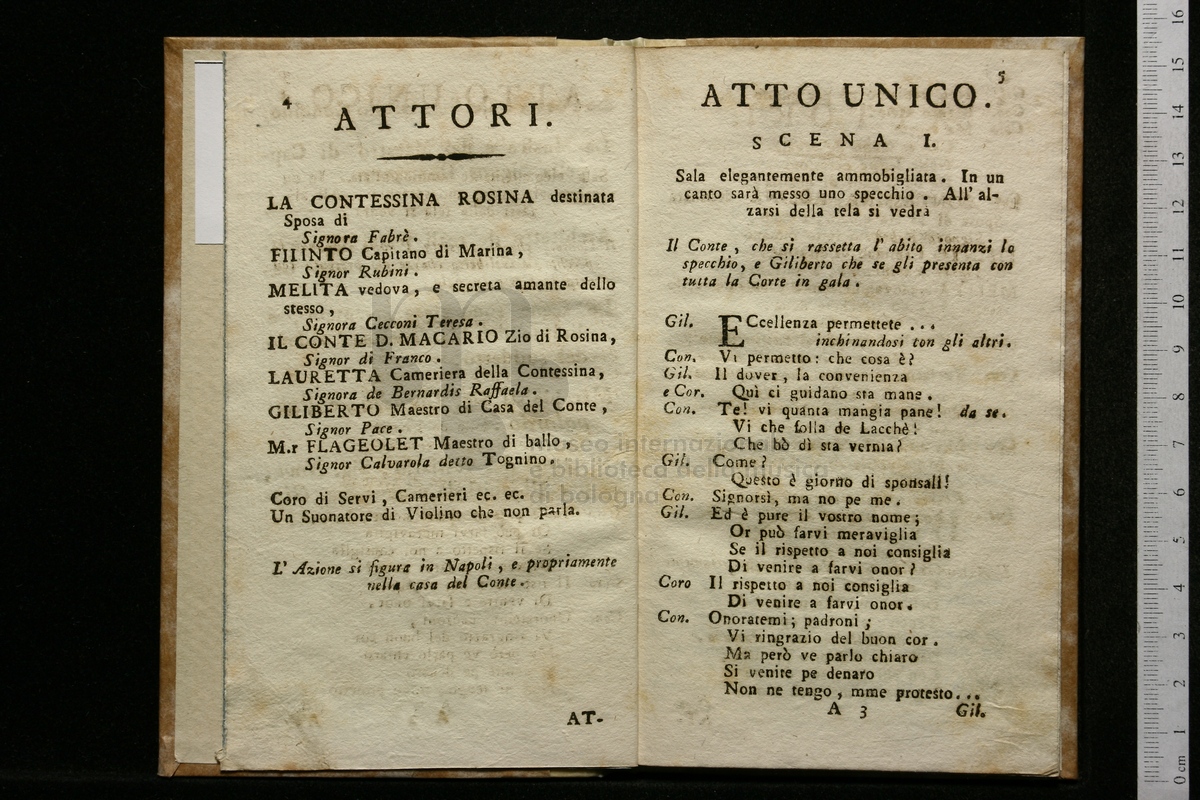 4
ATTORI.
LA CONTESSINA ROSINA destinata
Sposa di
Signora Fabrè.
FILINTO Capitano di Marina,
Signor Rubini.
MELITA vedova, e secreta amante dello
stesso,
Signora Cecconi Teresa.
IL CONTE D. MACARIO Zio di Rosina,
Signor di Franco.
LAURETTA Cameriera della Contessina,
Signora de Bernardis Raffaela.
GILIBERTO Maestro di Casa del Conte,
Signor Pace.
M.r FLAGEOLET Maestro di ballo,
Signor Calvarola detto Tognino.
Coro di Servi, Camerieri ec. ec.
Un Suonatore di Violino che non parla.
L' Azione si figura in Napoli, e propriamente
nella casa del Conte.
AT-
5
ATTO UNICO.
SCENA I.
Sala elegantemente ammobigliata. In un
canto sarà messo uno specchio. All' al-
zarsi della tela si vedrà
Il Conte, che si rassetta l' abito innanzi lo
specchio, e Giliberto che se gli presenta con
tutta la Corte in gala.
Gil. ECcellenza permettete ...
inchinandosi con gli altri.
Con. Vi permetto: che cosa è?
Gil. Il dover, la convenienza
e Cor. Quì ci guidano sta mane.
Con. Te! vi quanta mangia pane! da se.
Vi che folla de Lacchè!
Che bò dì sta vernia?
Gil. Come?
Questo è giorno di sponsali!
Con. Signorsì, ma no pe me.
Gil. Ed è pure il vostro nome;
Or può farvi meraviglia
Se il rispetto a noi consiglia
Di venire a farvi onor?
Coro Il rispetto a noi consiglia
Di venire a farvi onor.
Con. Onoratemi; padroni;
Vi ringrazio del buon cor.
Ma però ve parlo chiaro
Si venite pe denaro
Non ne tengo, mme protesto...
A 3 Gil.
museo internazionale
e biblioteca della musica
di bologna
0 cm 1 2 3 4 5 6 7 8 9 10 11 12 13 14 15 16